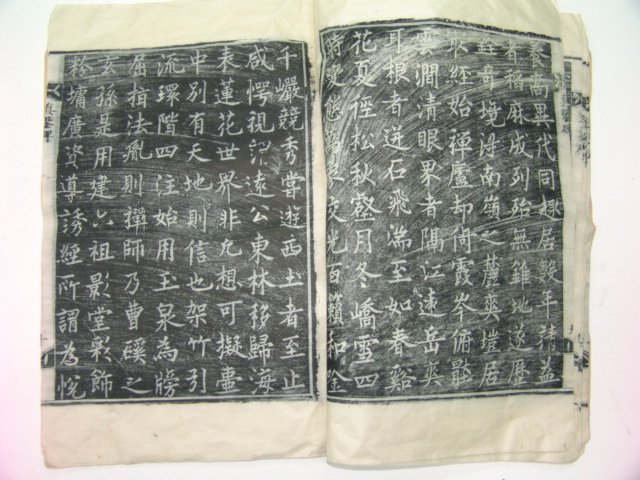 養高異代同趣居數年請益
者稻麻成列殆無錐地遂歷
銓奇境得南嶺之麓爽塏居
最經始禪廬却倚霞岑俯壓
雲澗清眼界者隔江遠岳爽
耳根者迸石飛湍至如春谿
花夏徑松秋壑月冬嶠雪四
時變態萬象交光百籟和唫
千巖競秀嘗遊西土者至止
咸愕視謂遠公東林移歸海
表蓮花世界非凡想可擬壺
中別有天地則信也架竹引
流環階四注始用玉泉為牓
屈指法胤則禪師乃曹溪之
玄孫是用建六祖影堂彩飾
粉墉廣資導誘經所謂為悅
真鑒碑